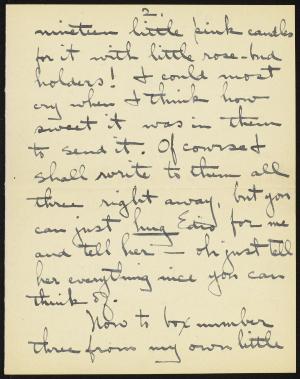 2.
nineteen little pink candles
for it with little rose-bud
holders! I could most
cry when I think how
sweet it was in them
to send it. Of course I
shall write to them all
three right away, but you
can just hug Edio for me
and tell her – oh just tell
her everything nice you can
think of.
Now to box number
three from my own little